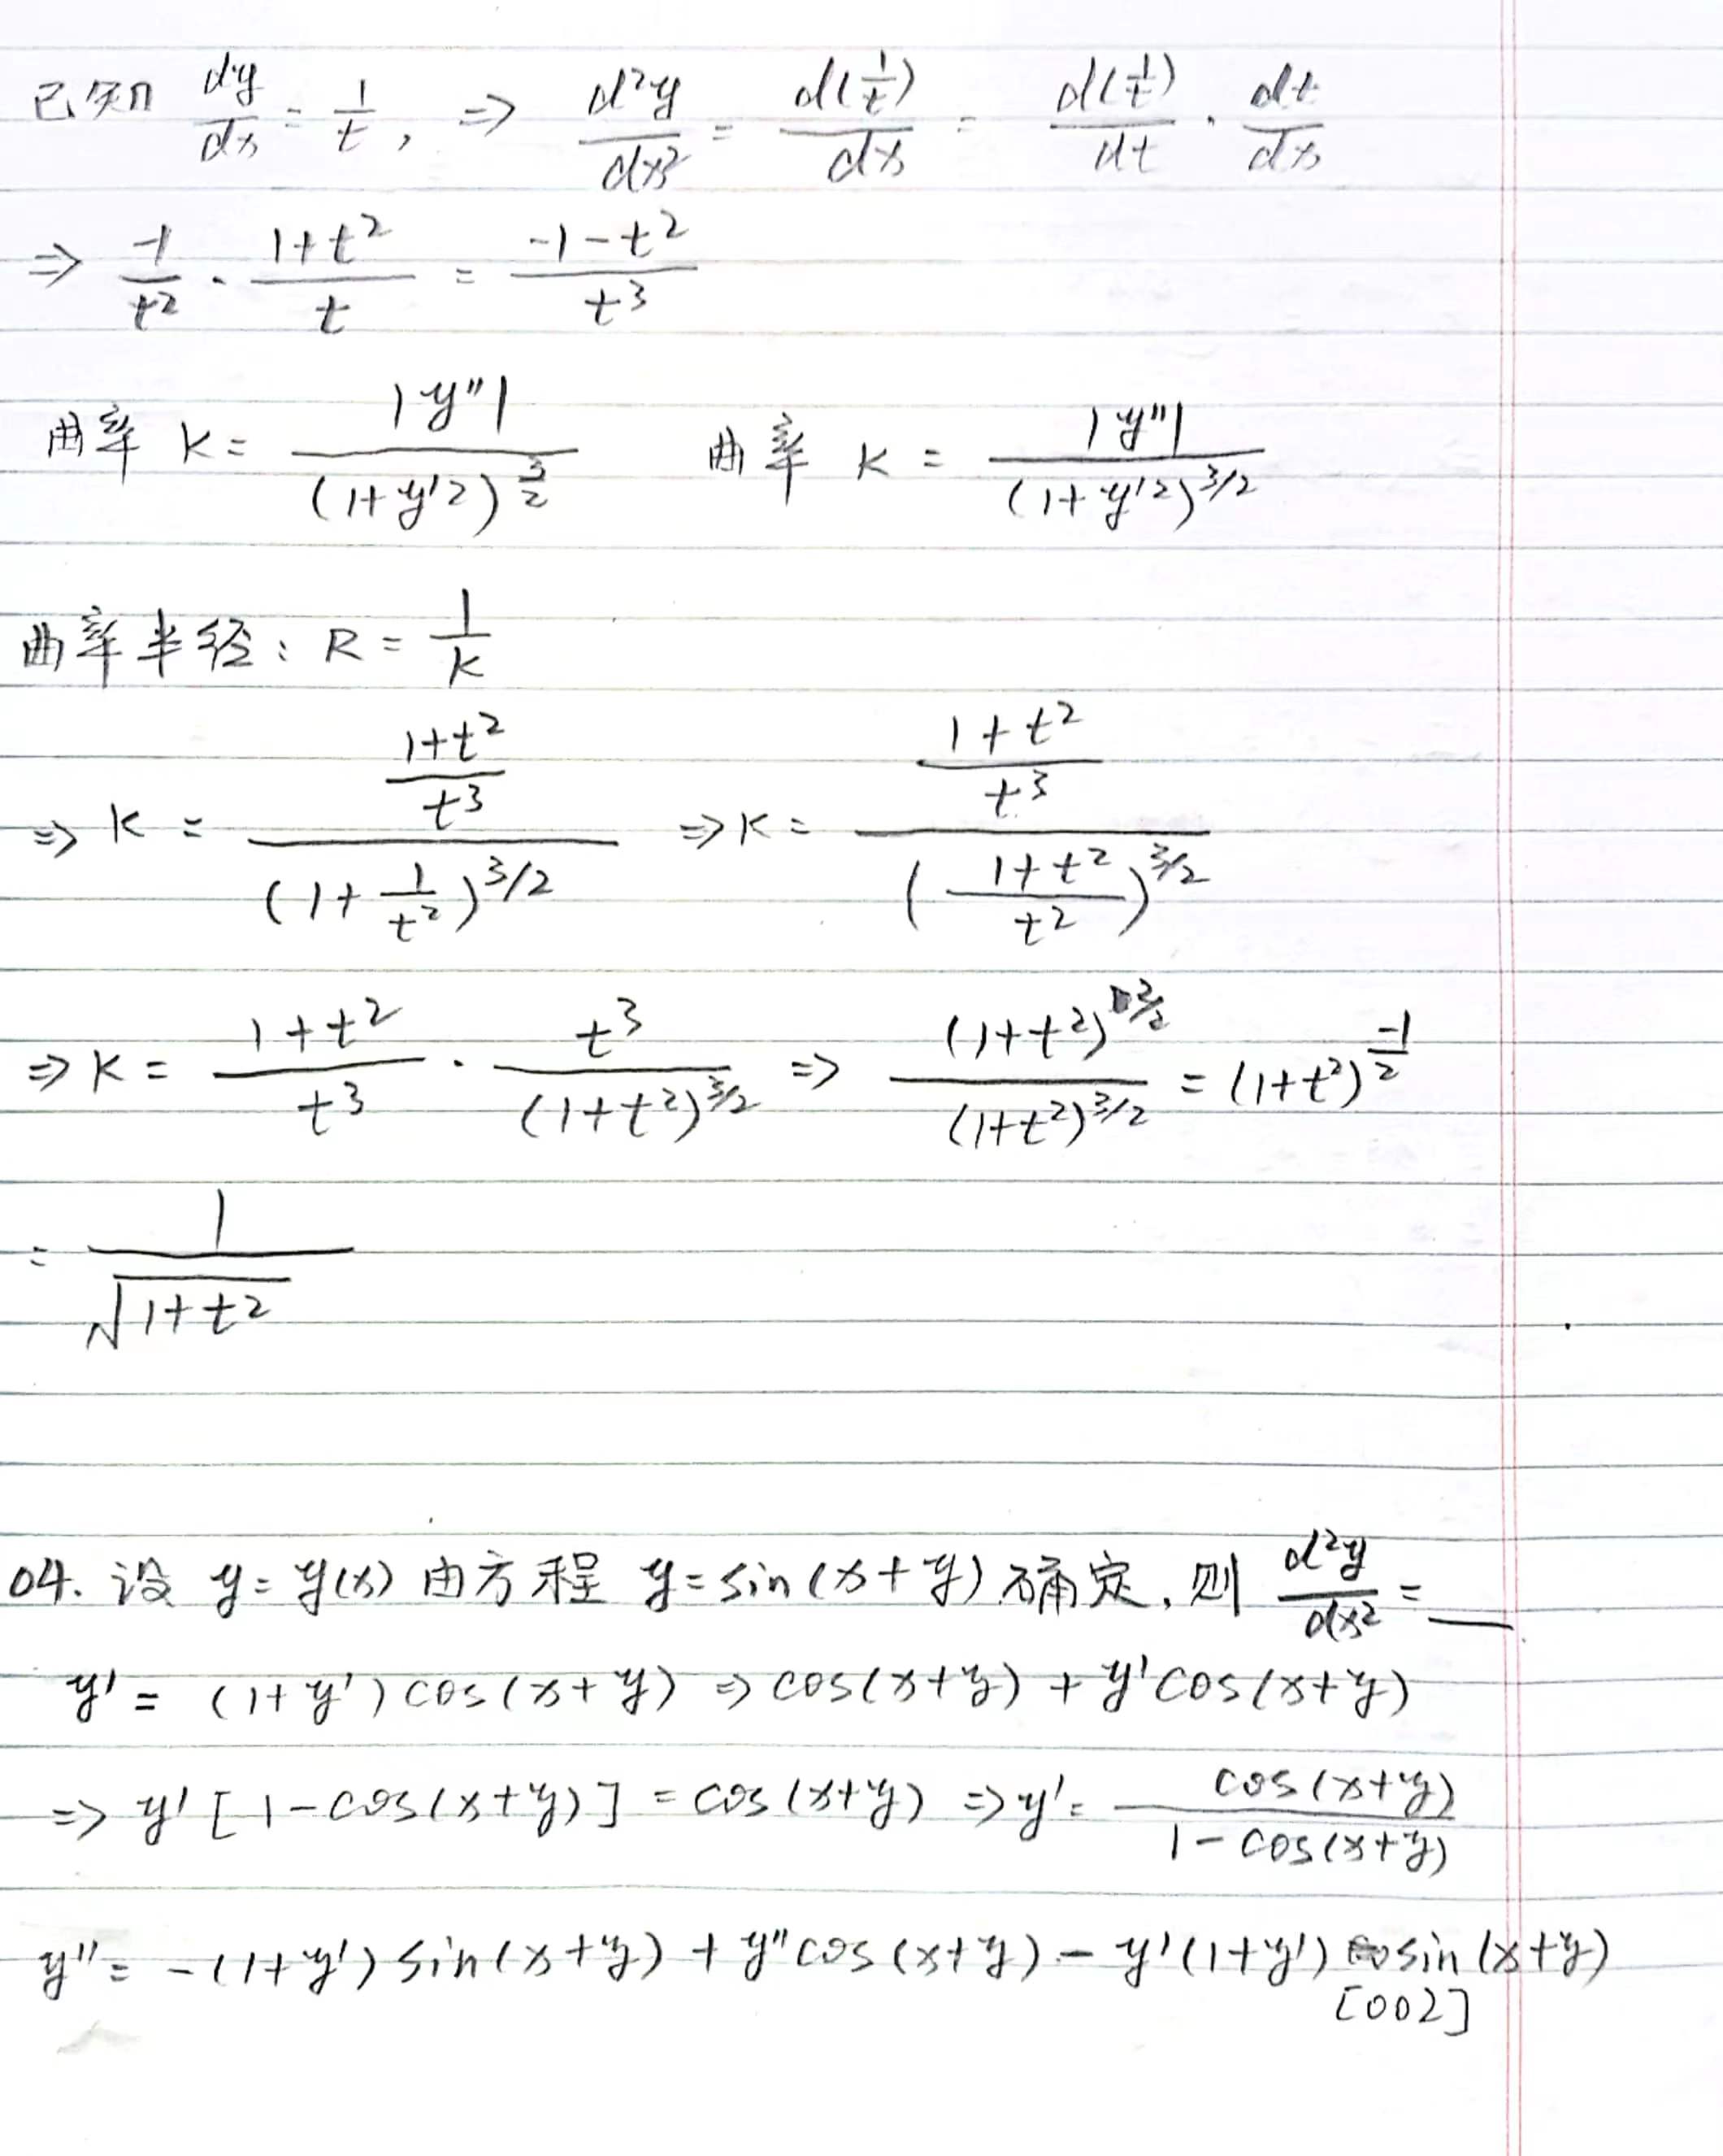 已知 dy/dx = 1/t, ⇒ d²y/dx² = d(1/t)/dx = d(1/t)/dt · dt/dx
⇒ -1/t² · (1+t²)/t = (-1-t²)/t³
曲率 K = |y''|/(1+y'²)^(3/2) 曲率 K = |y''|/(1+y'²)^(3/2)
曲率半径: R = 1/K
⇒ K = ((1+t²)/t³)/(1+1/t²)^(3/2) ⇒ K = ((1+t²)/t³)/((1+t²)/t²)^(3/2)
⇒ K = (1+t²)/t³ · t³/(1+t²)^(3/2) ⇒ (1+t²)^(2/2)/(1+t²)^(3/2) = (1+t²)^(-1/2)
= 1/√(1+t²)
04. 设 y = y(x) 由方程 y = sin(x+y) 确定, 则 d²y/dx² = __
y' = (1+y')cos(x+y) ⇒ cos(x+y) + y'cos(x+y)
⇒ y'[1-cos(x+y)] = cos(x+y) ⇒ y' = cos(x+y)/(1-cos(x+y))
y'' = -(1+y')sin(x+y) + y''cos(x+y) - y'(1+y')sin(x+y)
[002]